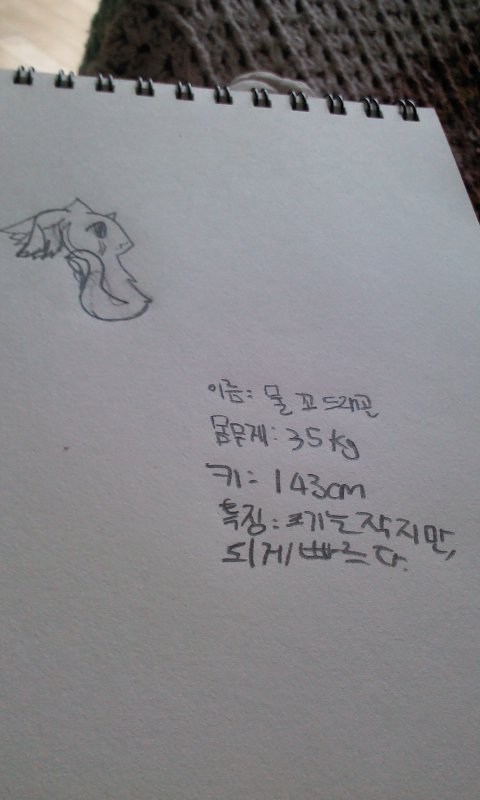 이름: 물꼬드래곤
몸무게: 35kg
키: 143cm
특징: 크기는 작지만,
되게 빠르다.